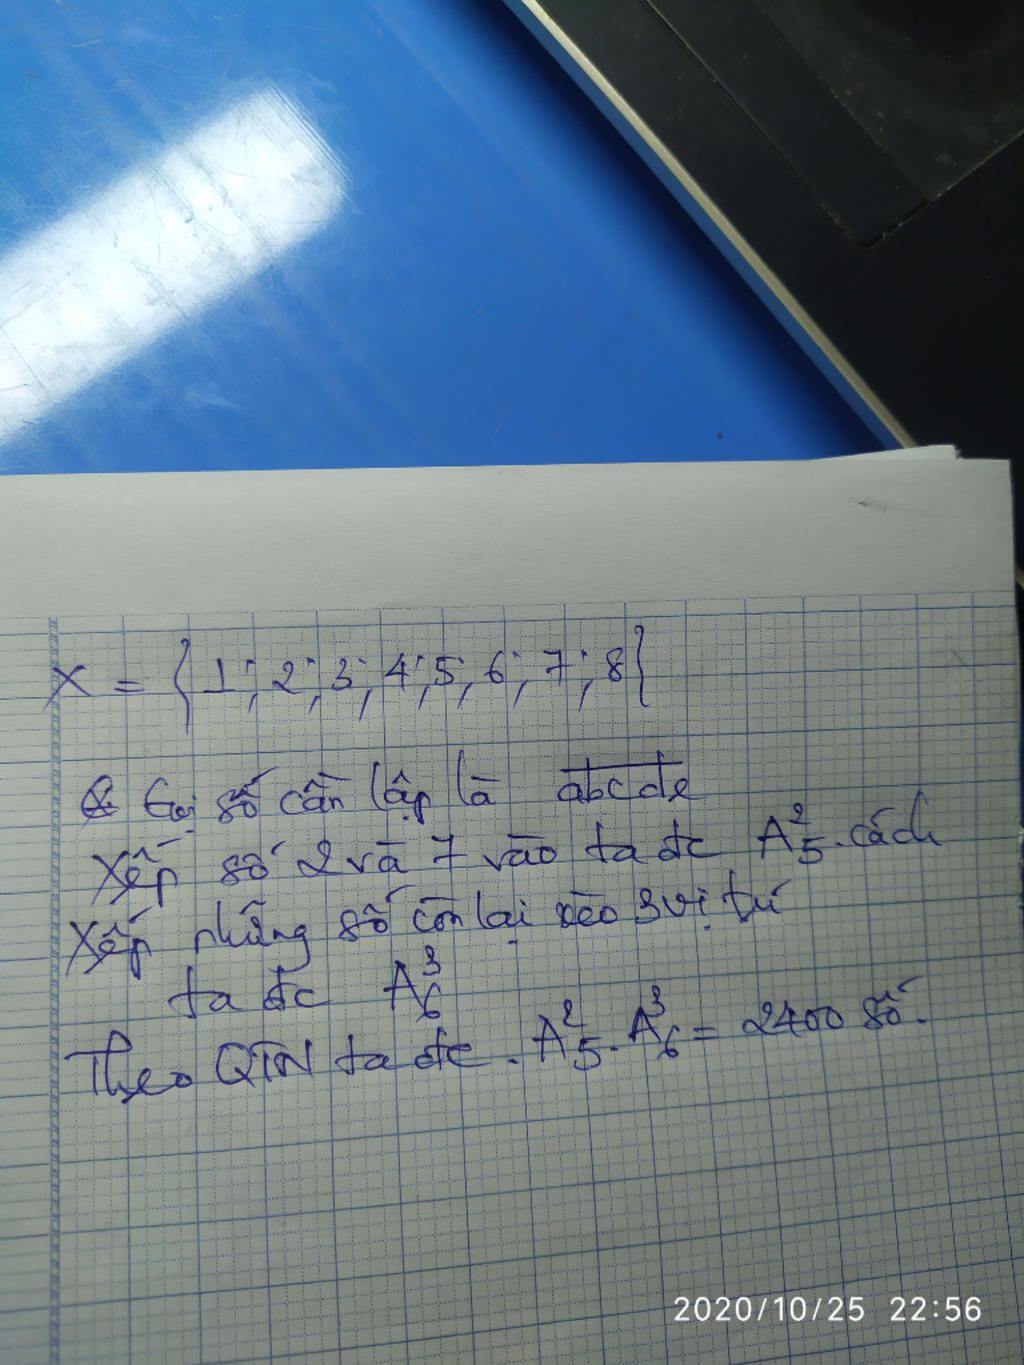 X = {1; 2; 3; 4; 5; 6; 7; 8}
Gọi số cần lập là abcde
Xếp số 2 và 7 vào ta đc A²₅ cách
Xếp những số còn lại vào 3 vị trí
ta đc A³₆
Theo QTN ta đc. A²₅. A³₆ = 2400 số.
2020/10/25 22:56